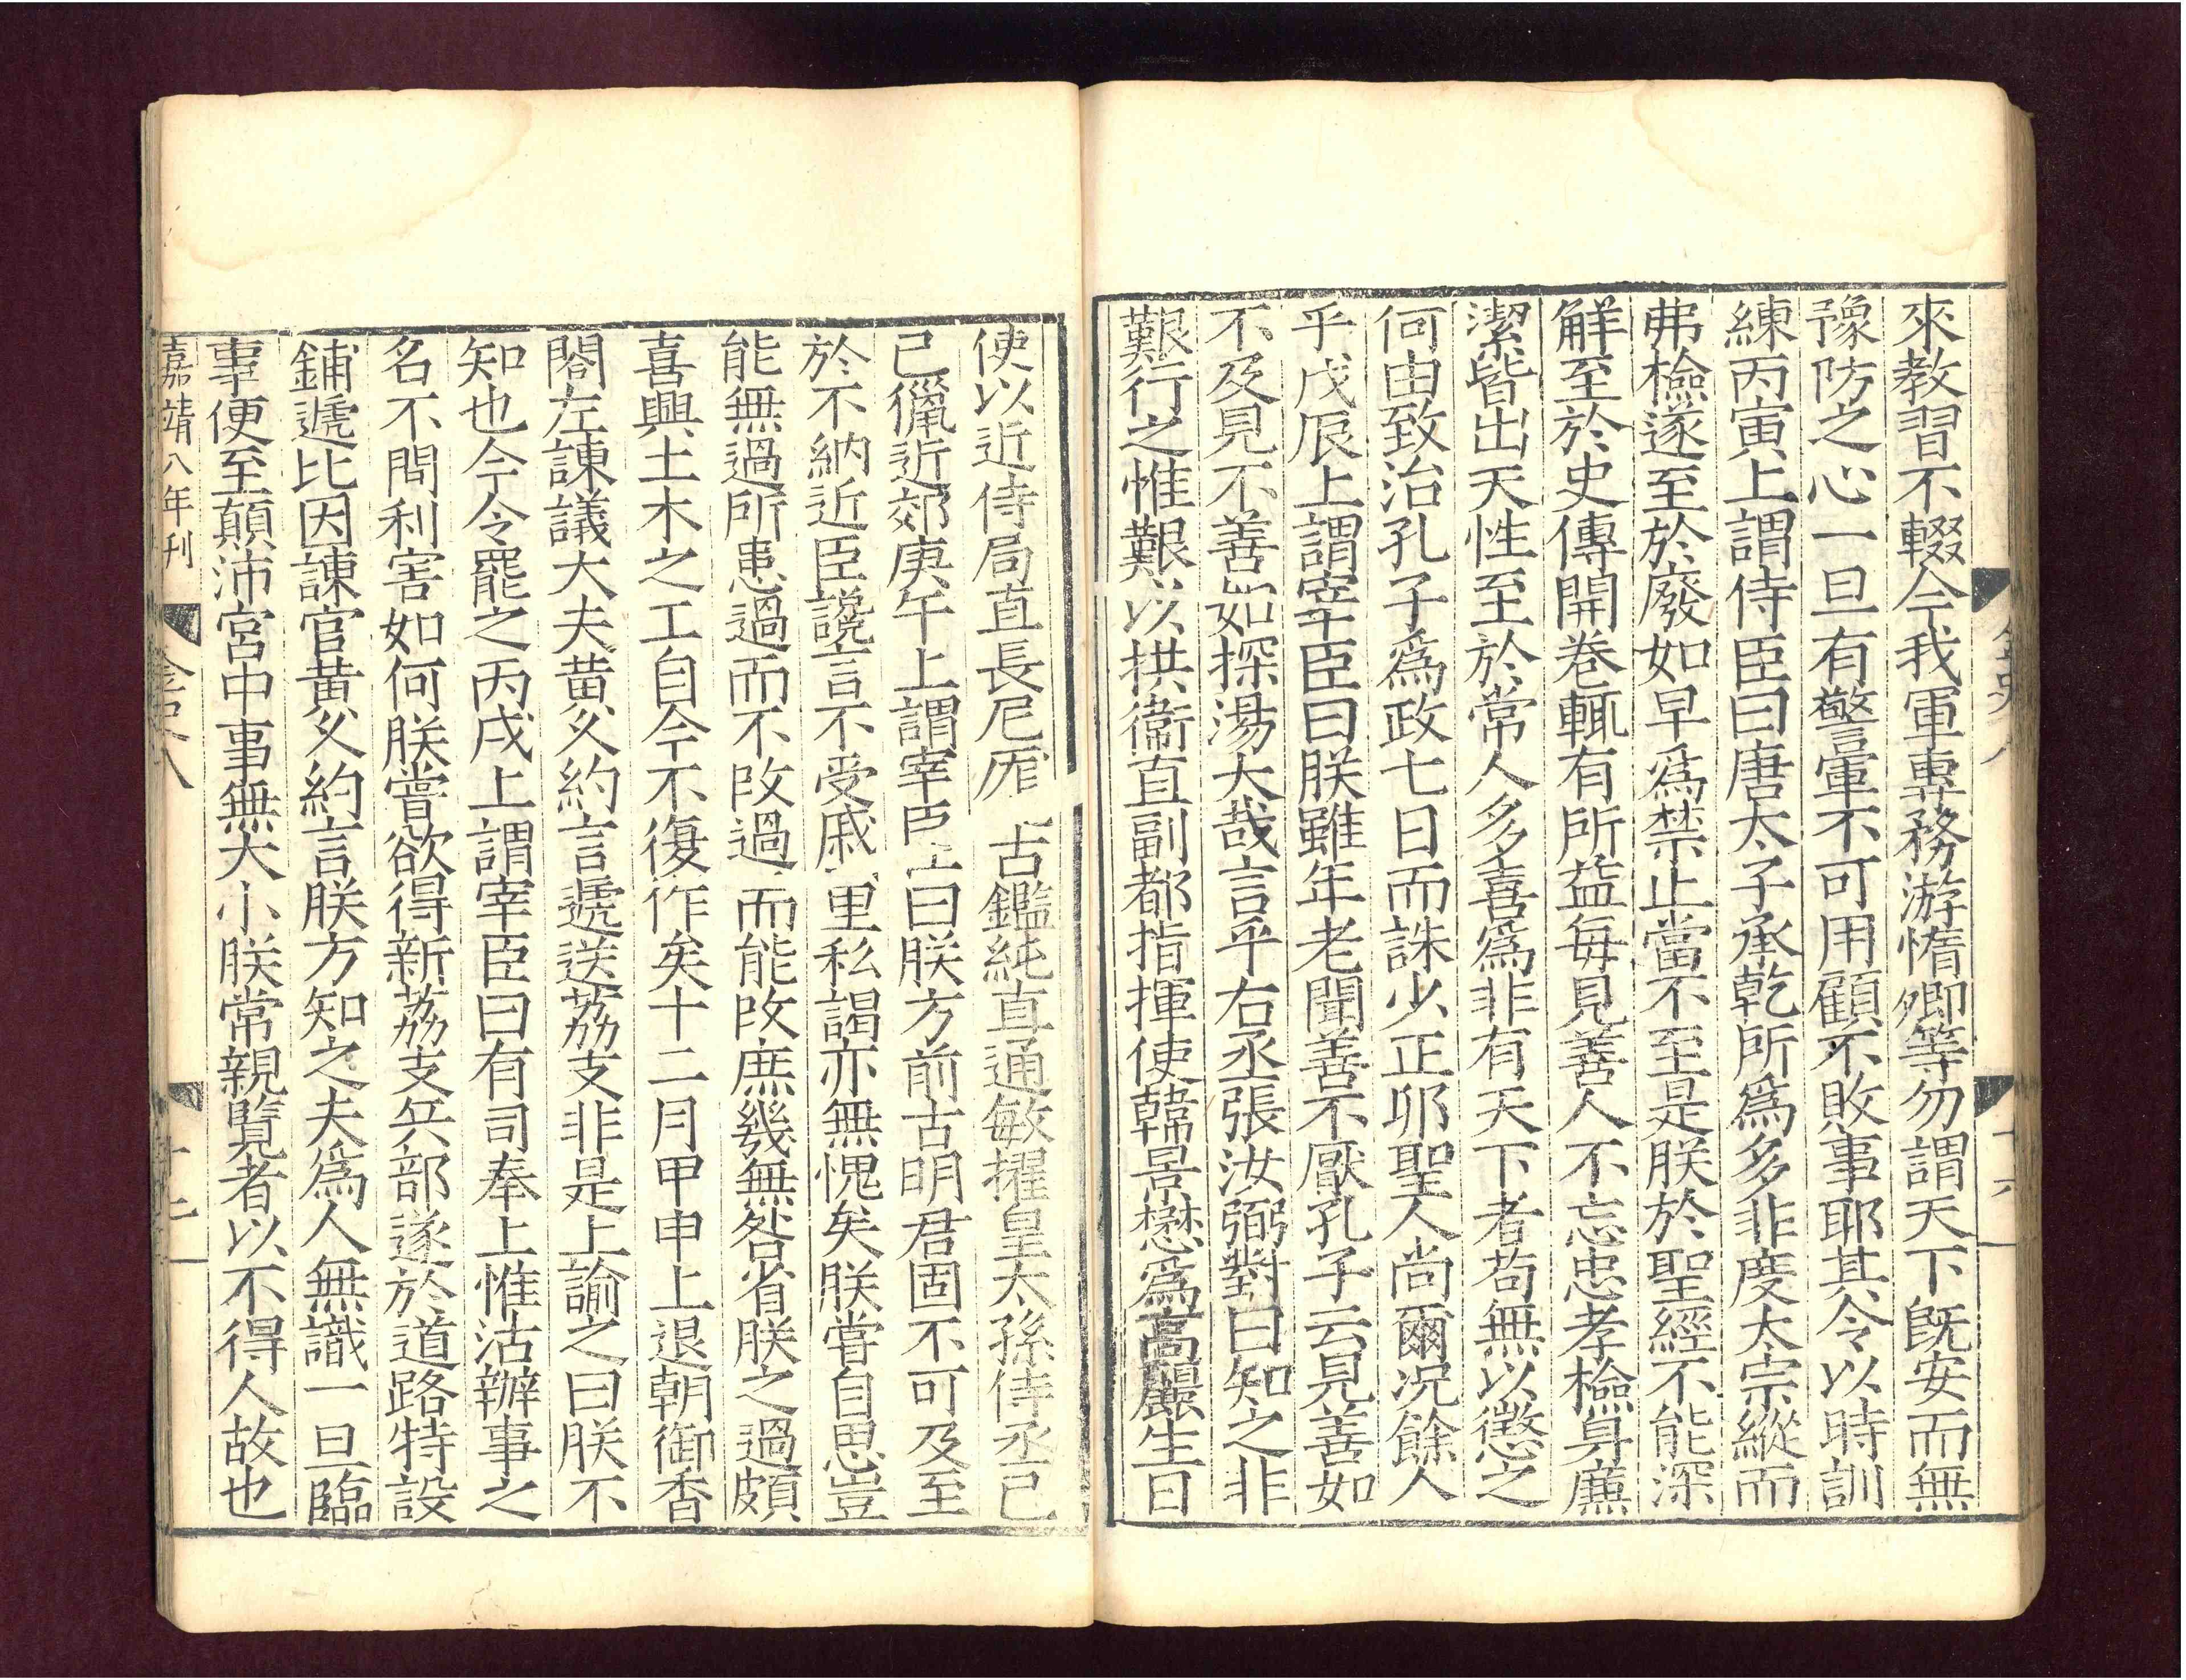 來教習不輟今我軍專務游惰卿等勿謂天下旣安而無
豫防之心一旦有警軍不可用顧不敗事耶其令以時訓
練丙寅上謂侍臣曰唐太子承乾所爲多非度太宗縱而
弗檢遂至於廢如早爲禁止當不至是朕於聖經不能深
解至於史傳開卷輒有所益每見善人不忘忠孝檢身廉
潔皆出天性至於常人多喜爲非有天下者苟無以懲之
何由致治孔子爲政七日而誅少正卯聖人尚爾況餘人
乎戊辰上謂宰臣曰朕雖年老聞善不厭孔子云見善如
不及見不善如探湯大哉言乎右丞張汝弼對曰知之非
艱行之惟艱以拱衞直副都指揮使韓景懋爲高麗生日
使以近侍局直長尼厖古鑑純直通敏擢皇太孫侍丞己
巳獵近郊庚午上謂宰臣曰朕方前古明君固不可及至
於不納近臣讒言不受戚里私謁亦無愧矣朕嘗自思豈
能無過所患過而不攺過而能攺庶幾無咎省朕之過頗
喜興土木之工自今不復作矣十二月甲申上退朝御香
閤左諫議大夫黃久約言遞送荔支非是上諭之曰朕不
知也今令罷之丙戌上謂宰臣曰有司奉上惟沽辦事之
名不問利害如何朕嘗欲得新荔支兵部遂於道路特設
鋪遞比因諫官黃久約言朕方知之夫爲人無識一旦臨
事便至顛沛宮中事無大小朕常親覽者以不得人故也
嘉靖八年刊
金史八